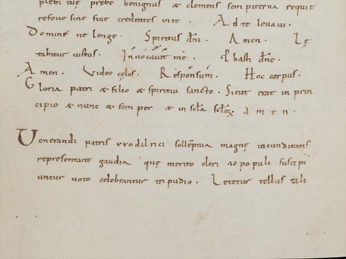 plebi tue prebe benignus & clemens sempiterna requie
credentes uite. Ad te leuaui.
Domine ne longe. Spiritus dñi. Amen. Lę
tabitur iustus. Inuocauit me. dñe.
Amen. Video cęlos. Responsum. Hoc corpus.
Gloria patri & filio & spiritui sancto. Sicut erat in prin
cipio & nunc & semper & in scła scłoꝝ amen.
Venerandi patris vvodalrici sollẽpnia magnę iocunditatis
representant gaudia quę merito cleri ac populi suscipi
untur uoto celebrantur tripudio. Letetur tellus tali